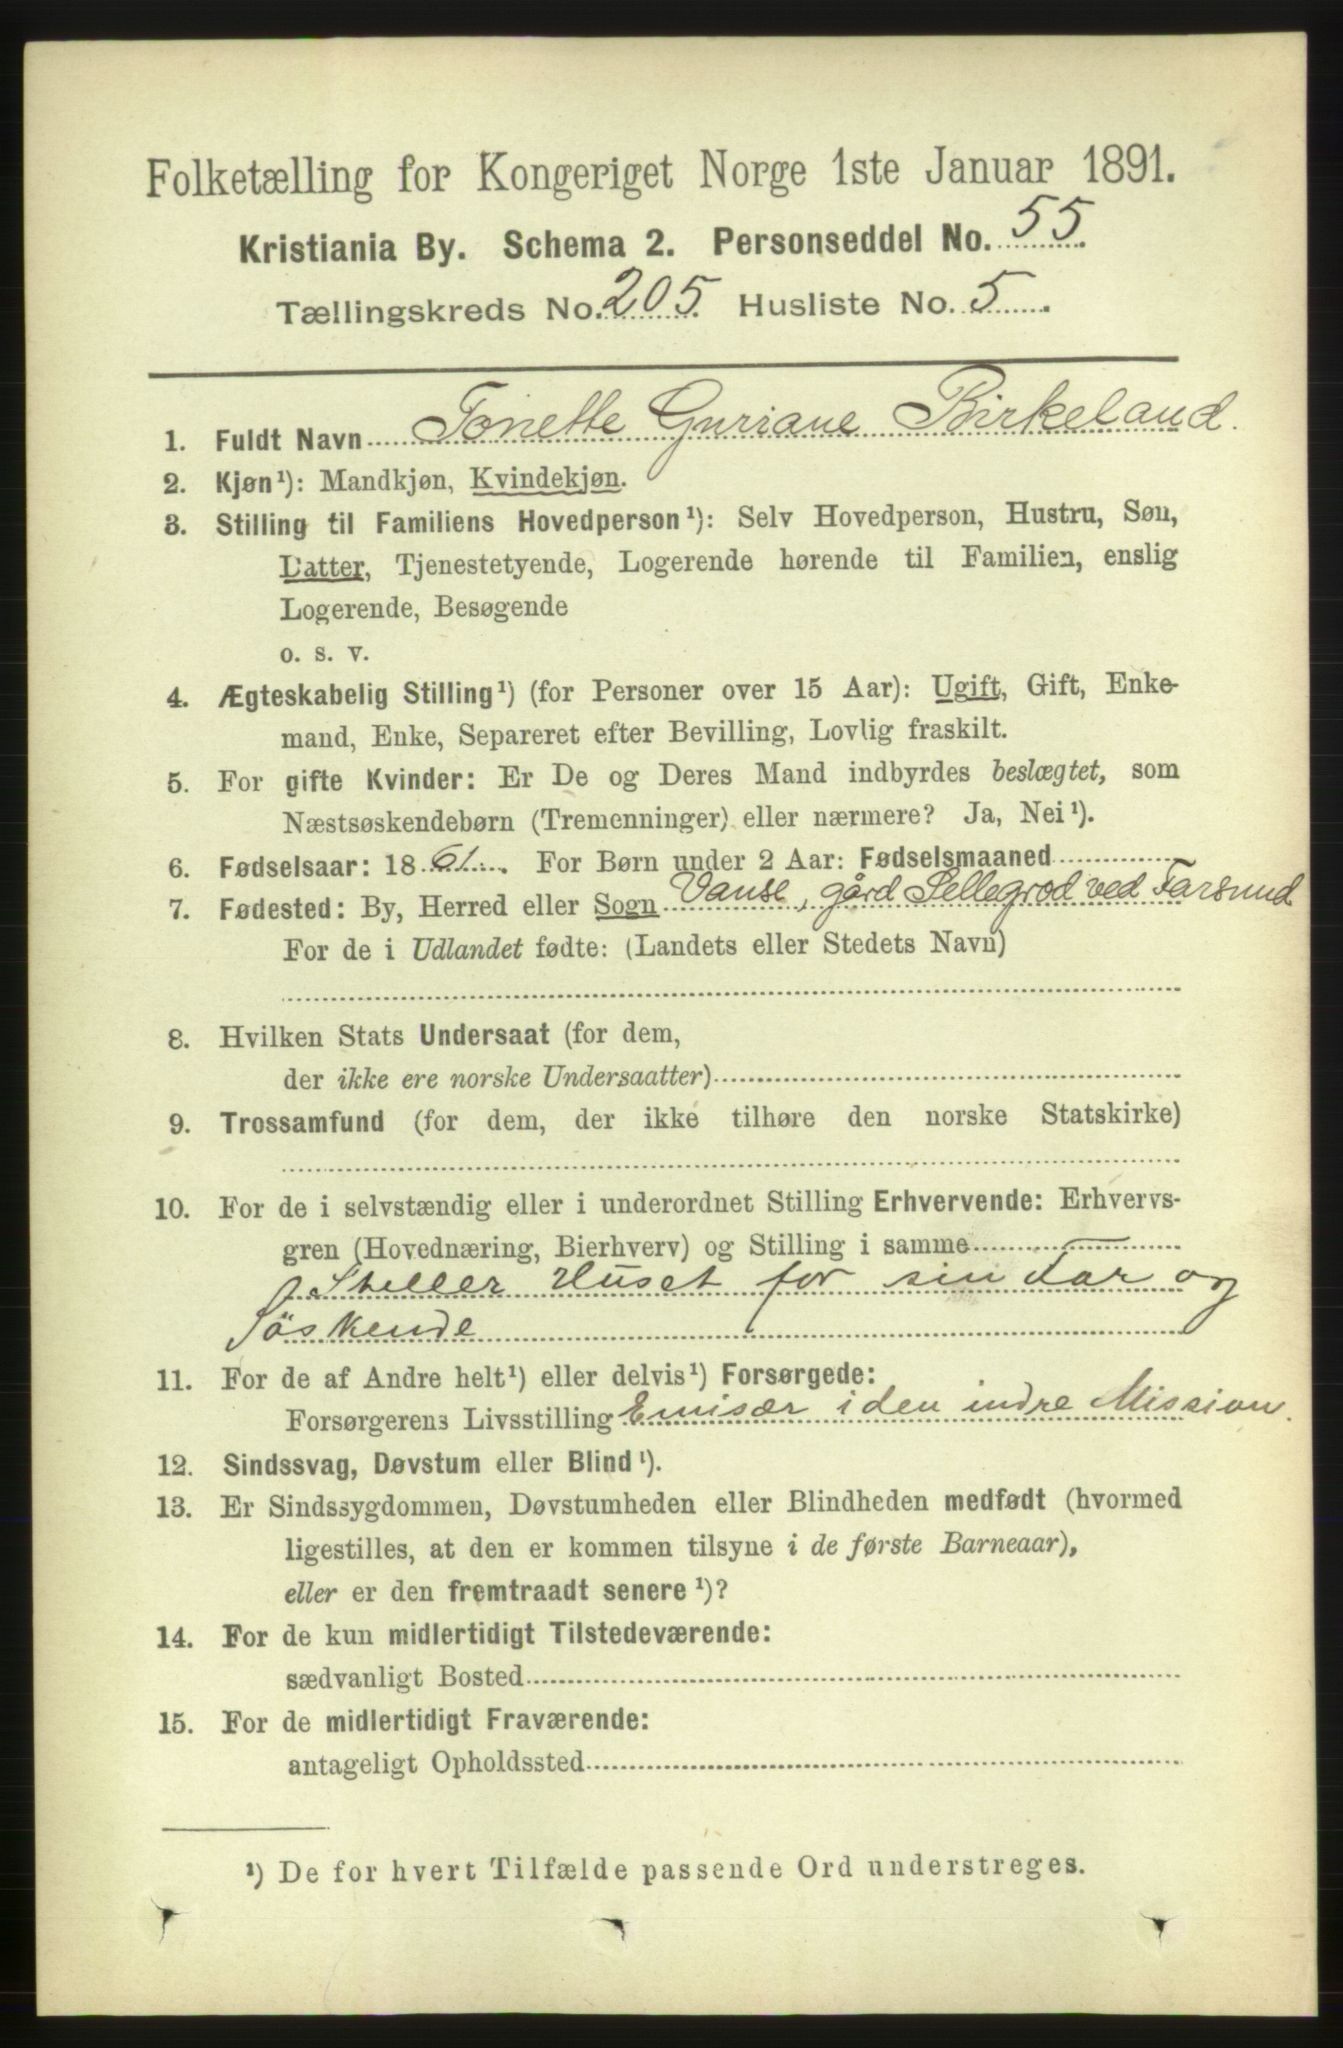 Folketælling for Kongeriget Norge 1ste Januar 1891.
Kristiania By. Schema 2. Personseddel No. 55
Tællingskreds No. 205 Husliste No. 5
1. Fuldt Navn Tonette Guriane Birkeland.
2. Kjøn¹): Mandkjøn, Kvindekjøn.
3. Stilling til Familiens Hovedperson¹): Selv Hovedperson, Hustru, Søn,
Datter, Tjenestetyende, Logerende hørende til Familien, enslig
Logerende, Besøgende
o. s. v.
4. Ægteskabelig Stilling¹) (for Personer over 15 Aar): Ugift, Gift, Enke-
mand, Enke, Separeret efter Bevilling, Lovlig fraskilt.
5. For gifte Kvinder: Er De og Deres Mand indbyrdes beslægtet, som
Næstsøskendebørn (Tremenninger) eller nærmere? Ja, Nei¹).
6. Fødselsaar: 1861. For Børn under 2 Aar: Fødselsmaaned
7. Fødested: By, Herred eller Sogn Vanse, gård Sellegrod ved Farsund
For de i Udlandet fødte: (Landets eller Stedets Navn)
8. Hvilken Stats Undersaat (for dem,
der ikke ere norske Undersaatter)
9. Trossamfund (for dem, der ikke tilhøre den norske Statskirke)
10. For de i selvstændig eller i underordnet Stilling Erhvervende: Erhvervs-
gren (Hovednæring, Bierhverv) og Stilling i samme
Steller Huset for sin Far og
Söskende
11. For de af Andre helt¹) eller delvis¹) Forsørgede:
Forsørgerens Livsstilling Emisær i den indre Mission.
12. Sindssvag, Døvstum eller Blind¹).
13. Er Sindssygdommen, Døvstumheden eller Blindheden medfødt (hvormed
ligestilles, at den er kommen tilsyne i de første Barneaar),
eller er den fremtraadt senere¹)?
14. For de kun midlertidigt Tilstedeværende:
sædvanligt Bosted
15. For de midlertidigt Fraværende:
antageligt Opholdssted
¹) De for hvert Tilfælde passende Ord understreges.